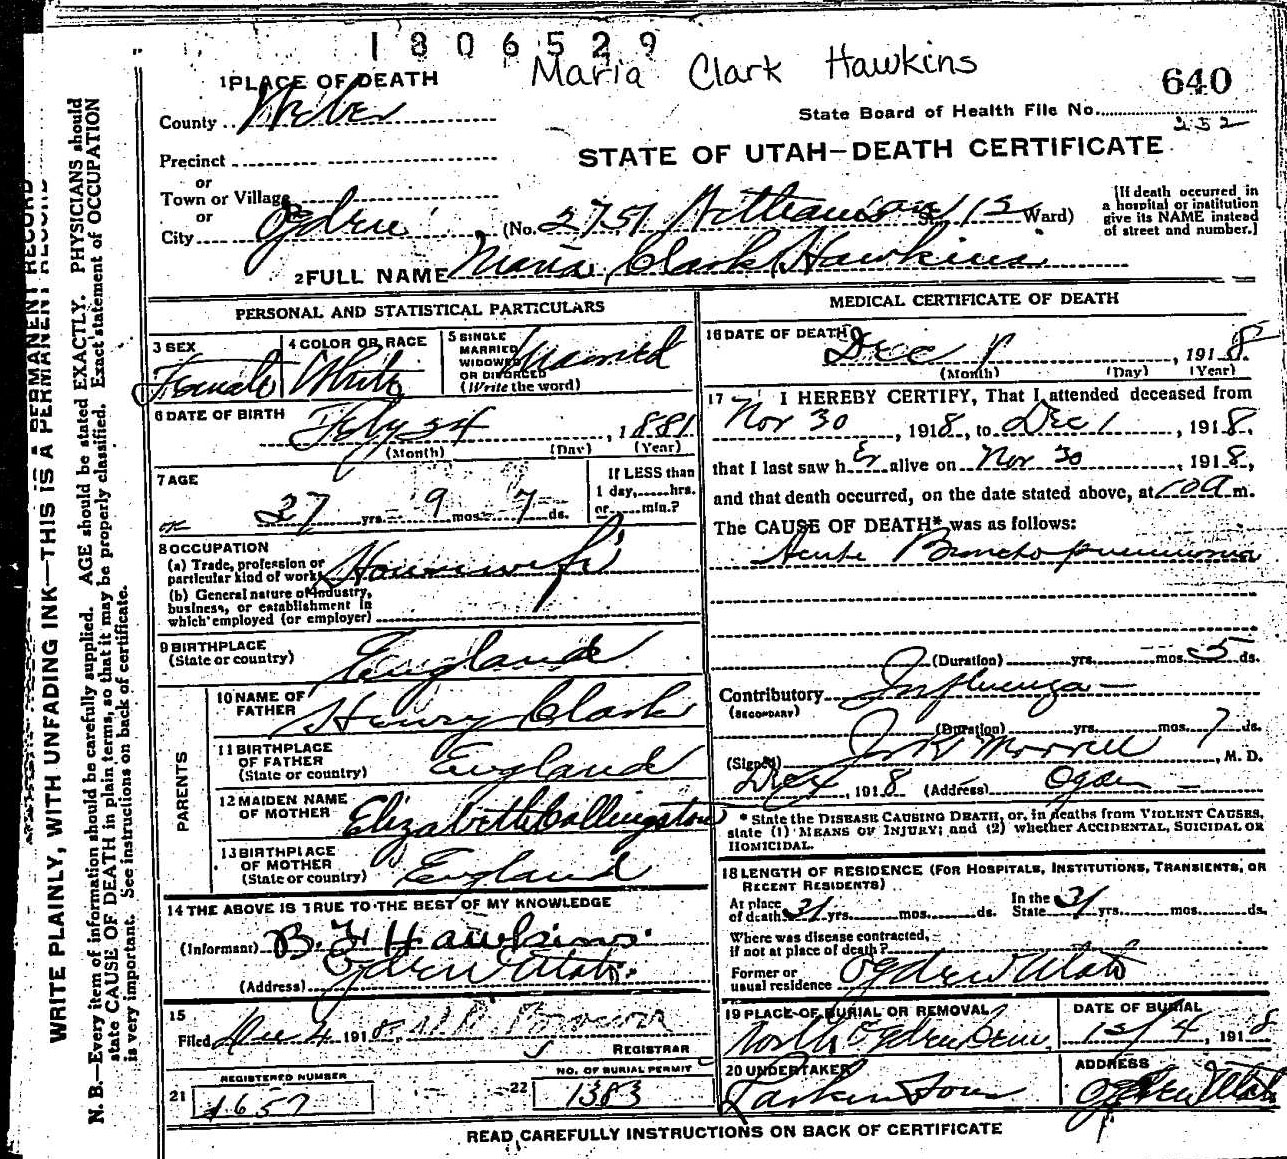 1806529
Maria Clark Hawkins
640
1 PLACE OF DEATH
State Board of Health File No.
252
County Weber
STATE OF UTAH—DEATH CERTIFICATE
Precinct
or
Town or Village
or
City Ogden (No. 2751 St. Ward)
[If death occurred in
a hospital or institution
give its NAME instead
of street and number.]
2 FULL NAME Maria Clark Hawkins
PERSONAL AND STATISTICAL PARTICULARS
3 SEX Female
4 COLOR OR RACE White
5 SINGLE
MARRIED
WIDOWED
OR DIVORCED
(Write the word)
Married
6 DATE OF BIRTH
Feby 24, 1881
(Month) (Day) (Year)
7 AGE
37 yrs. 9 mos. 7 ds.
If LESS than
1 day,......hrs.
or......min.?
or
8 OCCUPATION
(a) Trade, profession or
particular kind of work Housewife
(b) General nature of industry,
business, or establishment in
which employed (or employer)
9 BIRTHPLACE
(State or country) England
PARENTS
10 NAME OF
FATHER Henry Clark
11 BIRTHPLACE
OF FATHER
(State or country) England
12 MAIDEN NAME
OF MOTHER Elizabeth Collingston
13 BIRTHPLACE
OF MOTHER
(State or country) England
14 THE ABOVE IS TRUE TO THE BEST OF MY KNOWLEDGE
(Informant) B. F. Hawkins
(Address) Ogden Utah.
15
Filed Dec 4 1918
REGISTRAR
REGISTERED NUMBER
21 1657
NO. OF BURIAL PERMIT
22 1383
MEDICAL CERTIFICATE OF DEATH
16 DATE OF DEATH
Dec 1, 1918
(Month) (Day) (Year)
17 I HEREBY CERTIFY, That I attended deceased from
Nov 30, 1918, to Dec 1, 1918.
that I last saw her alive on Nov 30, 1918,
and that death occurred, on the date stated above, at m.
The CAUSE OF DEATH* was as follows:
Acute Broncho pneumonia
(Duration) yrs. mos. 5 ds.
Contributory Influenza
(SECONDARY)
(Duration) yrs. mos. 7 ds.
(Signed) Morrell, M. D.
Dec 4, 1918 (Address) Ogden
* State the DISEASE CAUSING DEATH, or, in deaths from VIOLENT CAUSES,
state (1) MEANS OF INJURY; and (2) whether ACCIDENTAL, SUICIDAL OR
HOMICIDAL.
18 LENGTH OF RESIDENCE (FOR HOSPITALS, INSTITUTIONS, TRANSIENTS, OR
RECENT RESIDENTS)
At place
of death 31 yrs. mos. ds.
In the
State 31 yrs. mos. ds.
Where was disease contracted,
if not at place of death?
Former or
usual residence Ogden Utah
19 PLACE OF BURIAL OR REMOVAL
North Ogden Cem.
DATE OF BURIAL
12/4, 1918
20 UNDERTAKER
Larkin Sons
ADDRESS
Ogden Utah
READ CAREFULLY INSTRUCTIONS ON BACK OF CERTIFICATE
WRITE PLAINLY, WITH UNFADING INK—THIS IS A PERMANENT RECORD
N. B.—Every item of information should be carefully supplied. AGE should be stated EXACTLY. PHYSICIANS should
state CAUSE OF DEATH in plain terms, so that it may be properly classified. Exact statement of OCCUPATION
is very important. See instructions on back of certificate.